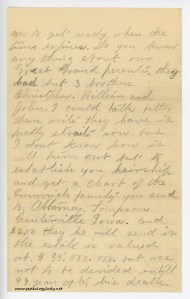 are to get ready when the
time expires. Do you know
any thing about our
Great Grand parents, they
had but 3 brothers
Christopher, William and
John. I could talk better
than write they have it
pretty straight now but
I dont know how it
will turn out but to
establish you heirship
and get a chart of the
family you send
to Attorney Tompson
Centerville Iowa. and
$2.00 they he will send it
the estate is valued
at $ 35.000.000. but was
not to be divided untill
99 years after his death.